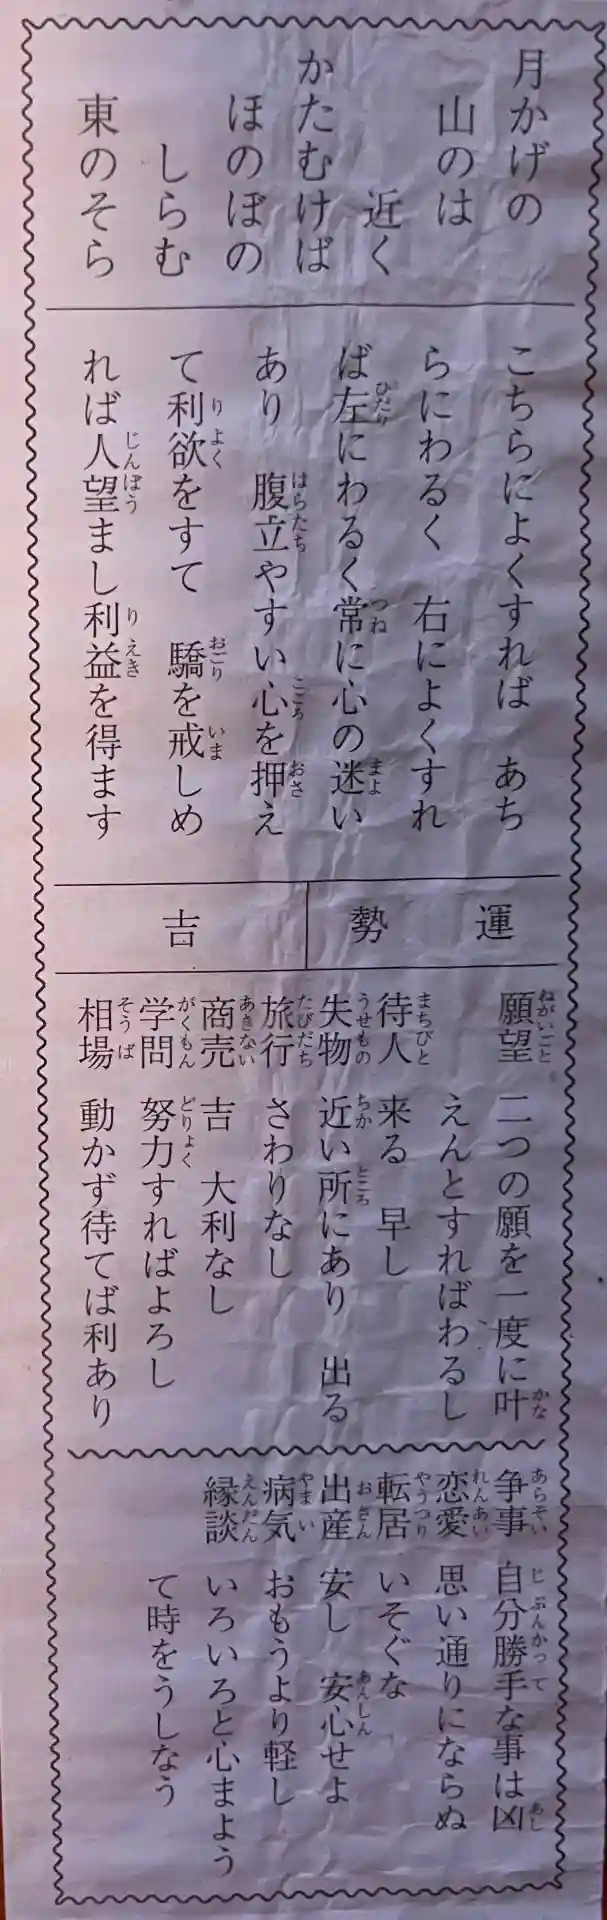 月かげの
山のは
近く
かたむけば
ほのぼの
しらむ
東のそら
こちらによくすれば あち
らにわるく 右によくすれ
ば左にわるく常に心の迷い
あり 腹立やすい心を押え
て利欲をすて 驕を戒しめ
れば人望まし利益を得ます
運 勢
吉
願望 二つの願を一度に叶
えんとすればわるし
待人 来る 早し
失物 近い所にあり 出る
旅行 さわりなし
商売 吉 大利なし
学問 努力すればよろし
相場 動かず待てば利あり
争事 自分勝手な事は凶
恋愛 思い通りにならぬ
転居 いそぐな
出産 安し 安心せよ
病気 おもうより軽し
縁談 いろいろと心まよう
て時をうしなう